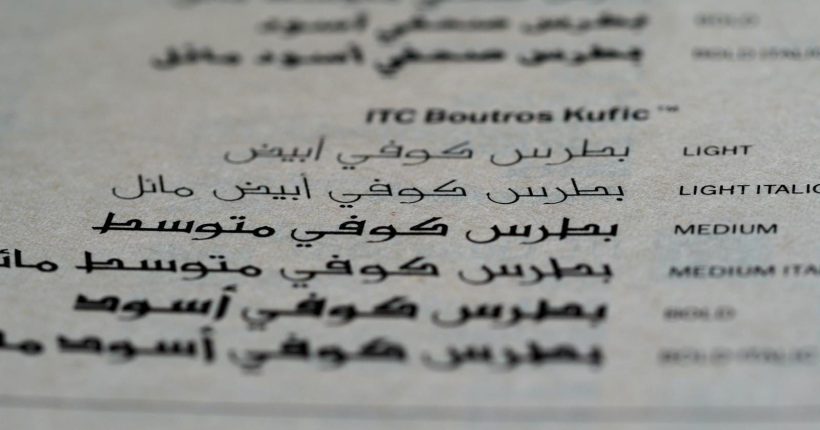 BOLD بطرس صحفي أسود
BOLD ITALIC بطرس صحفي أسود مائل
ITC Boutros Kufic™
LIGHT بطرس كوفي أبيض
LIGHT ITALIC بطرس كوفي أبيض مائل
MEDIUM بطرس كوفي متوسط
MEDIUM ITA بطرس كوفي متوسط مائ
BOLD بطرس كوفي أسود
BOLD ITALIC بطرس كوفي أسود ما